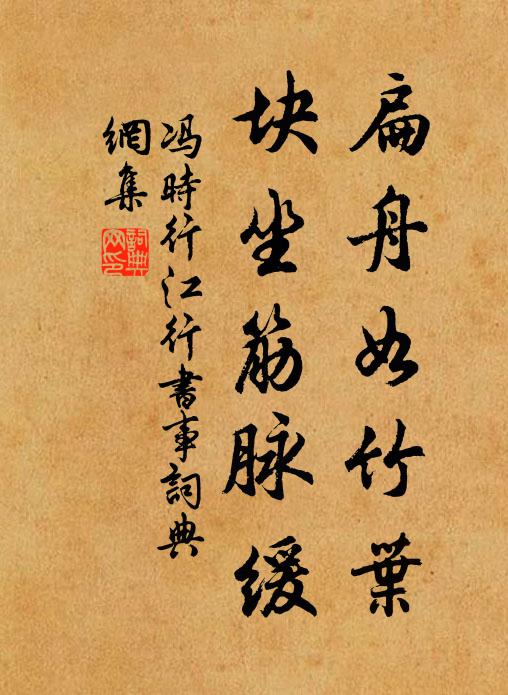 扁舟如竹葉
块坐筋脉缓
冯時行江行書事詞典
網集
詞典網印